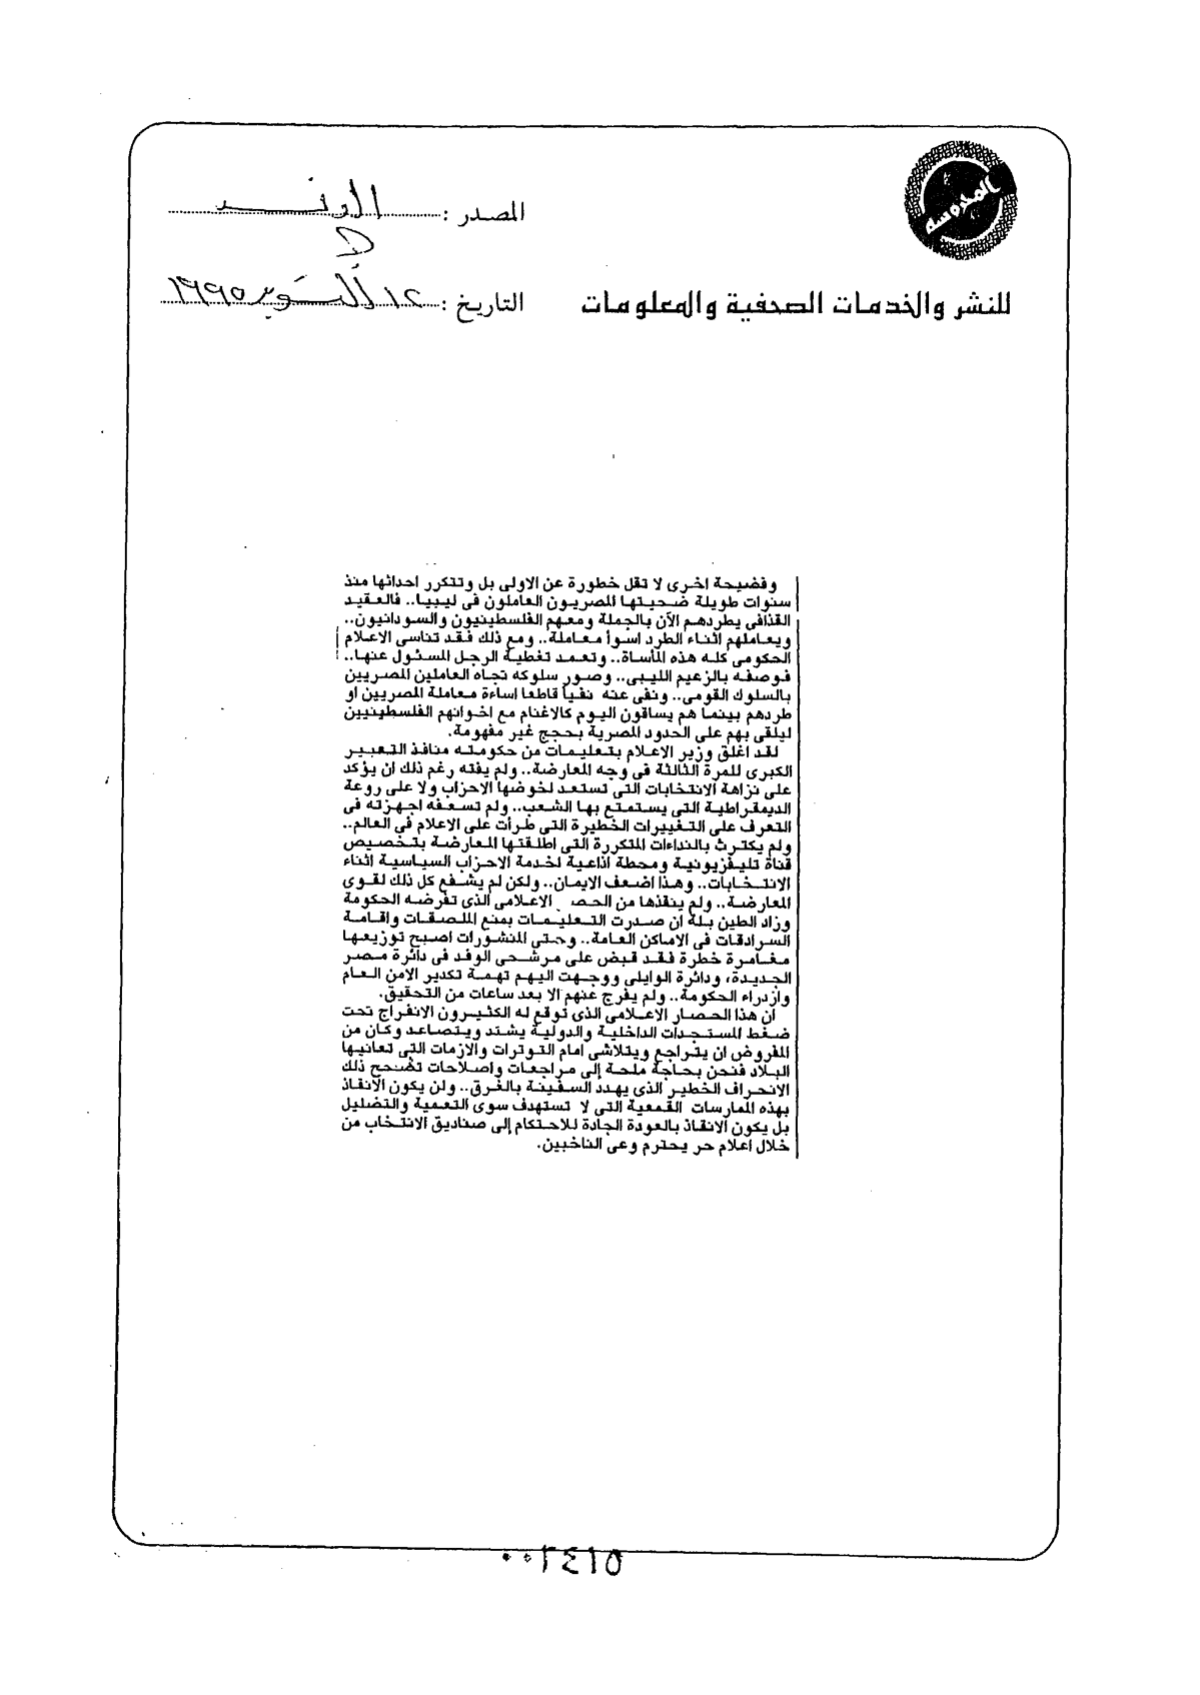 المحروسة
المصدر : الوفد
للنشر والخدمات الصحفية والمعلومات
التاريخ : ١٢ أكتوبر ١٩٩٥
وفضيحة اخرى لا تقل خطورة عن الاولى بل وتتكرر احداثها منذ
سنوات طويلة ضحيتها المصريون العاملون فى ليبيا.. فالعقيد
القذافى يطردهم الآن بالجملة ومعهم الفلسطينيون والسودانيون..
ويعاملهم اثناء الطرد اسوأ معاملة.. ومع ذلك فقد تناسى الاعلام
الحكومى كله هذه المأساة.. وتعمد تغطية الرجل المسئول عنها..
فوصفه بالزعيم الليبى.. وصور سلوكه تجاه العاملين المصريين
بالسلوك القومى.. ونفى عنه نفياً قاطعا اساءة معاملة المصريين او
طردهم بينما هم يساقون اليوم كالاغنام مع اخوانهم الفلسطينيين
ليلقى بهم على الحدود المصرية بحجج غير مفهومة.
لقد اغلق وزير الاعلام بتعليمات من حكومته منافذ التعبير
الكبرى للمرة الثالثة فى وجه المعارضة.. ولم يفته رغم ذلك ان يؤكد
على نزاهة الانتخابات التى تستعد لخوضها الاحزاب ولا على روعة
الديمقراطية التى يستمتع بها الشعب.. ولم تسعفه اجهزته فى
التعرف على التغييرات الخطيرة التى طرأت على الاعلام فى العالم..
ولم يكترث بالنداءات المتكررة التى اطلقتها المعارضة بتخصيص
قناة تليفزيونية ومحطة اذاعية لخدمة الاحزاب السياسية اثناء
الانتخابات.. وهذا اضعف الايمان.. ولكن لم يشفع كل ذلك لقوى
المعارضة.. ولم ينقذها من الحص الاعلامى الذى تفرضه الحكومة
وزاد الطين بلة ان صدرت التعليمات بمنع الملصقات واقامة
السرادقات فى الاماكن العامة.. وحتى المنشورات اصبح توزيعها
مغامرة خطرة فقد قبض على مرشحى الوفد فى دائرة مصر
الجديدة، ودائرة الوايلى ووجهت اليهم تهمة تكدير الامن العام
وازدراء الحكومة.. ولم يفرج عنهم الا بعد ساعات من التحقيق.
ان هذا الحصار الاعلامى الذى توقع له الكثيرون الانفراج تحت
ضغط المستجدات الداخلية والدولية يشتد ويتصاعد وكان من
المفروض ان يتراجع ويتلاشى امام التوترات والازمات التى تعانيها
البلاد فنحن بحاجة ملحة إلى مراجعات واصلاحات تصحح ذلك
الانحراف الخطير الذى يهدد السفينة بالغرق.. ولن يكون الانقاذ
بهذه الممارسات القمعية التى لا تستهدف سوى التعمية والتضليل
بل يكون الانقاذ بالعودة الجادة للاحتكام إلى صناديق الانتخاب من
خلال اعلام حر يحترم وعى الناخبين.
٠٠٢٤١٥